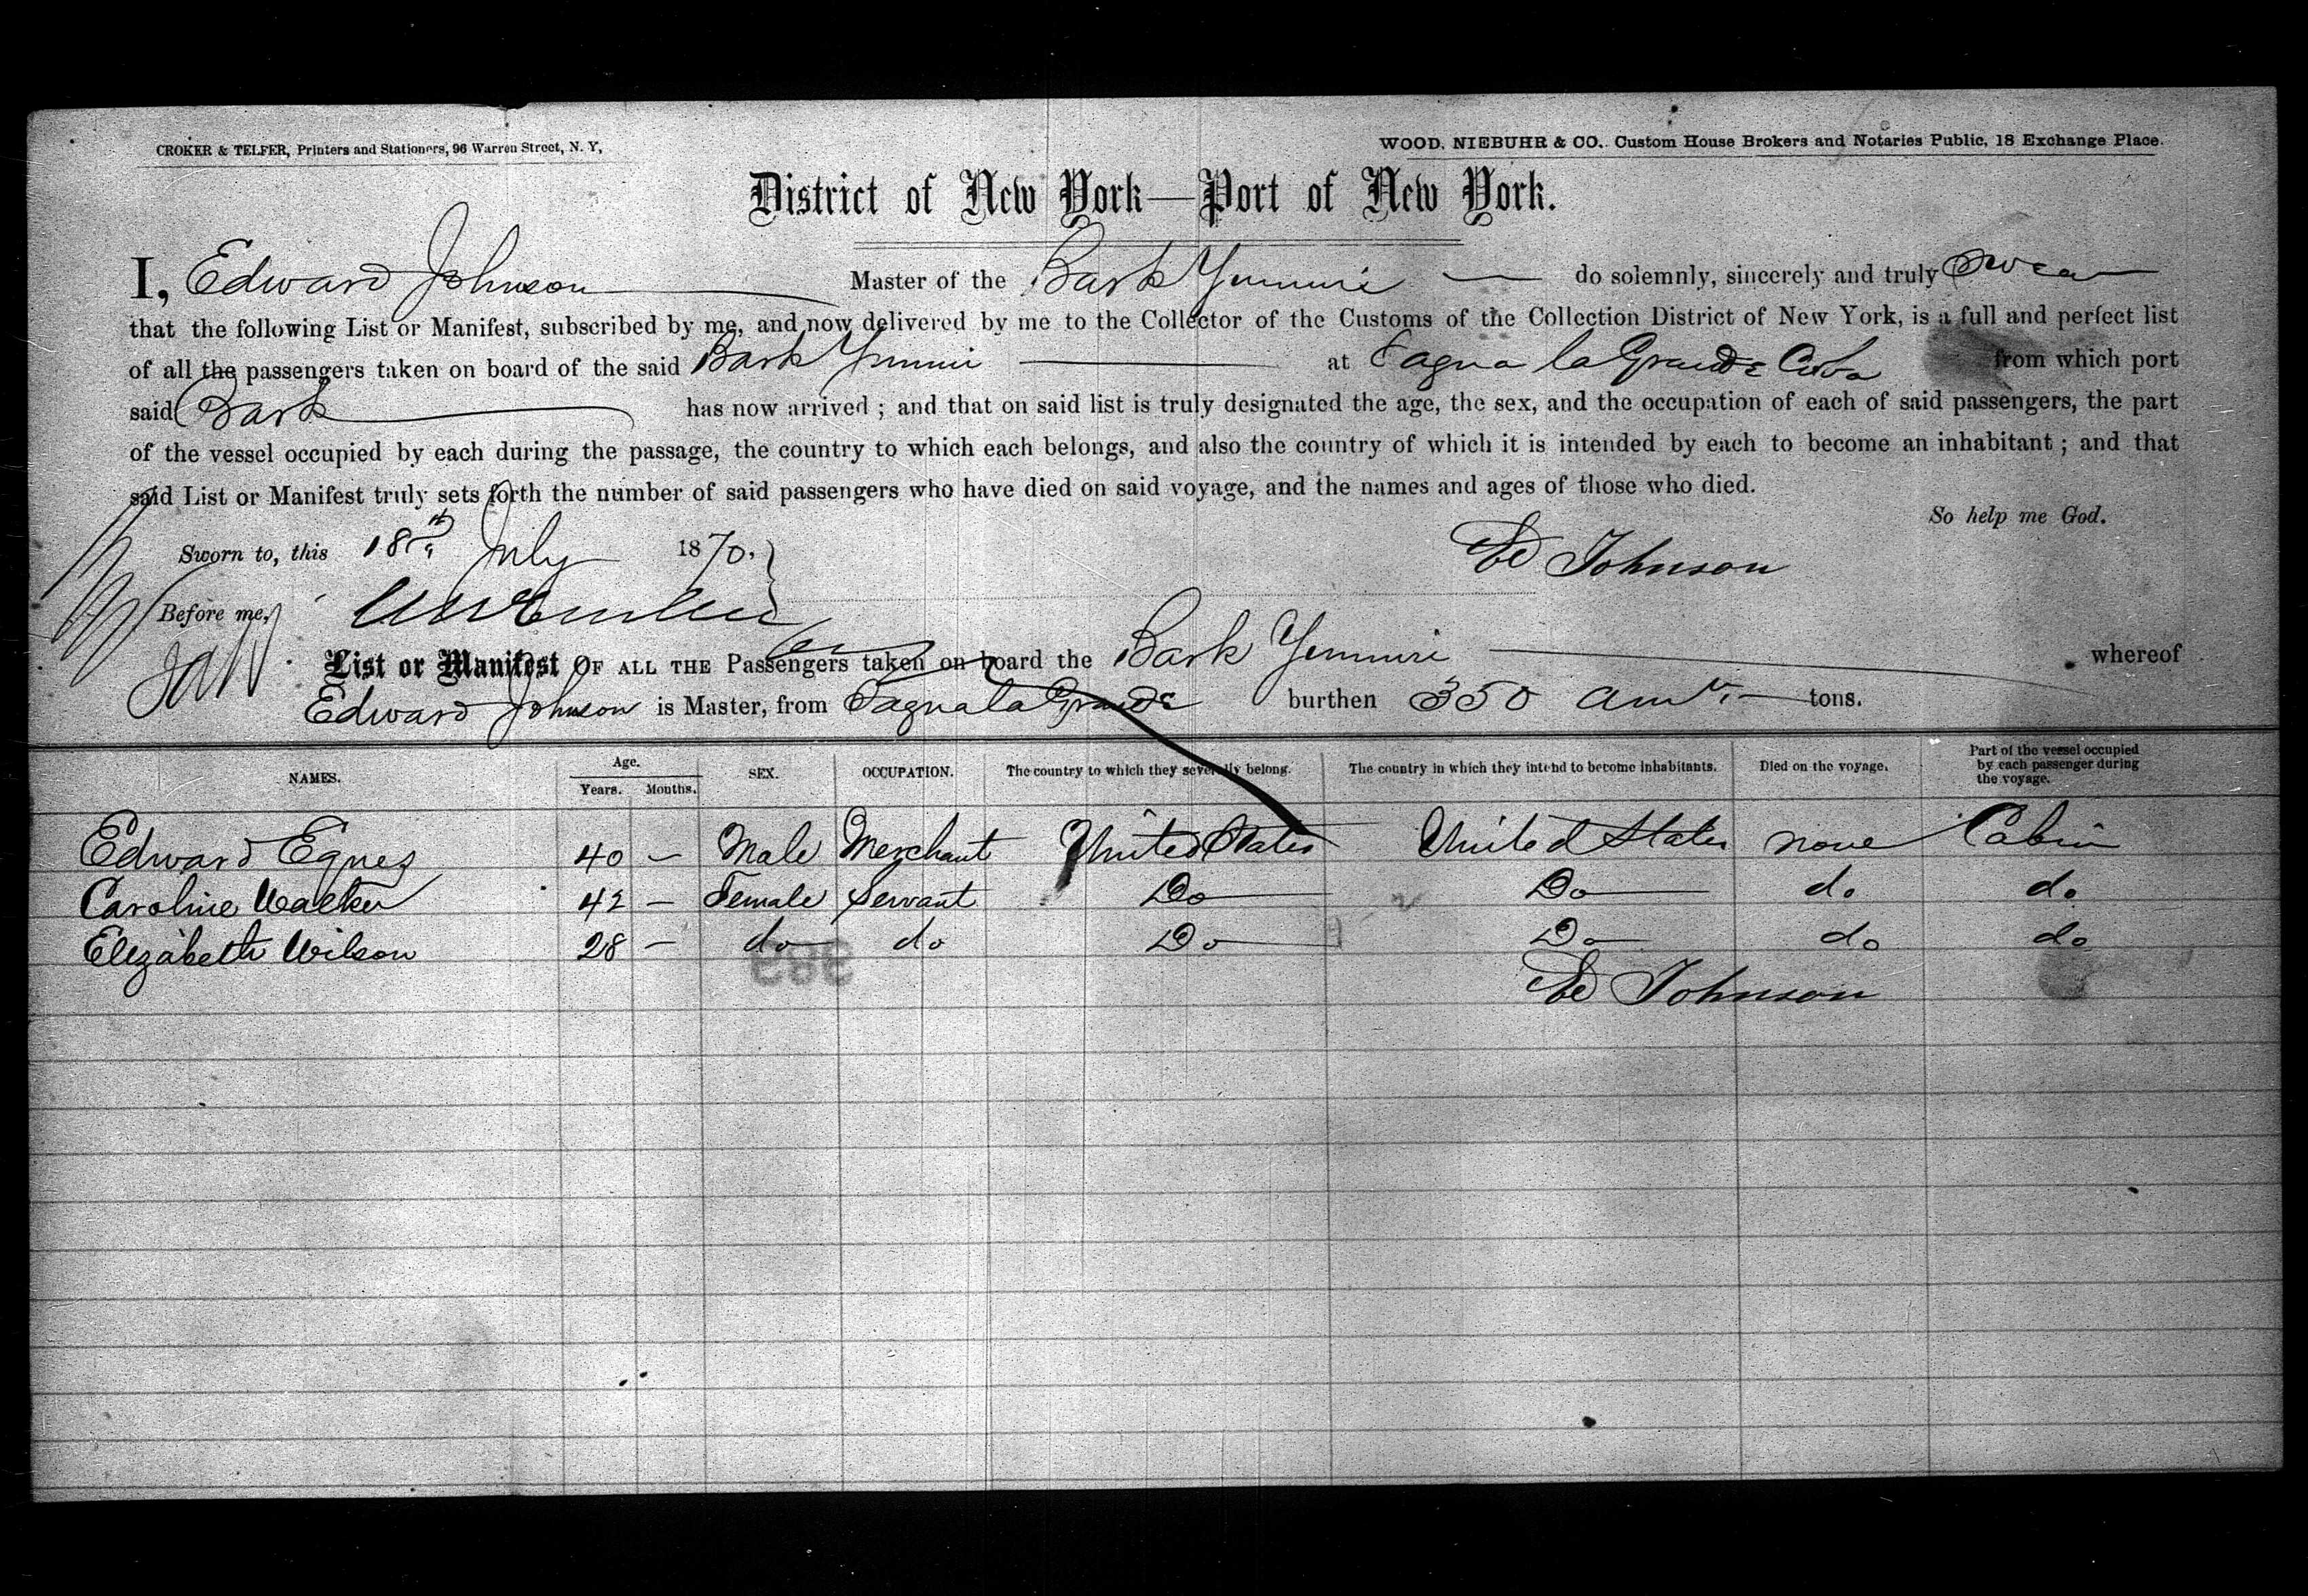 CROKER & TELFER, Printers and Stationers, 96 Warren Street, N. Y,
WOOD, NIEBUHR & CO., Custom House Brokers and Notaries Public, 18 Exchange Place.
District of New York—Port of New York.
I, Edward Johnson Master of the Bark Yumuri do solemnly, sincerely and truly swear
that the following List or Manifest, subscribed by me, and now delivered by me to the Collector of the Customs of the Collection District of New York, is a full and perfect list
of all the passengers taken on board of the said Bark Yumuri at Sagua la Grande Cuba from which port
said Bark has now arrived ; and that on said list is truly designated the age, the sex, and the occupation of each of said passengers, the part
of the vessel occupied by each during the passage, the country to which each belongs, and also the country of which it is intended by each to become an inhabitant ; and that
said List or Manifest truly sets forth the number of said passengers who have died on said voyage, and the names and ages of those who died.
So help me God.
Sworn to, this 18th July 1870. Ed Johnson
Before me,
List or Manifest OF ALL THE Passengers taken on board the Bark Yumuri whereof
Edward Johnson is Master, from Sagua la Grande burthen 350 tons.
NAMES. Age. Years. Months. SEX. OCCUPATION. The country to which they severally belong. The country in which they intend to become inhabitants. Died on the voyage. Part of the vessel occupied by each passenger during the voyage.
Edward Egues 40 — Male Merchant United States United States none Cabin
Caroline Walker 42 — Female Servant Do Do do do
Elizabeth Wilson 28 — do do Do Do do do
Ed Johnson